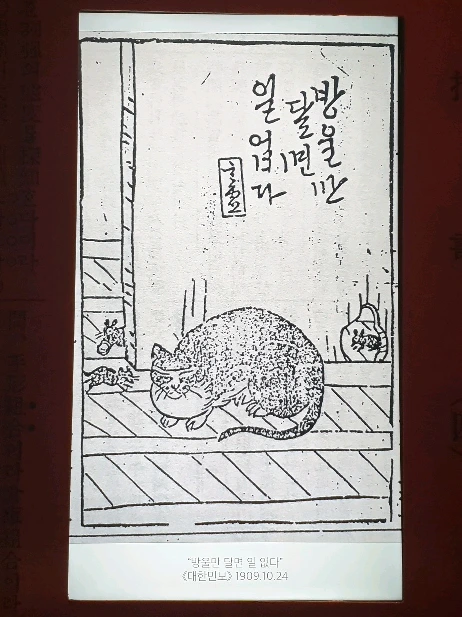 방울만
달면
일 업다
"방울만 달면 일 없다"
《대한민보》 1909.10.24